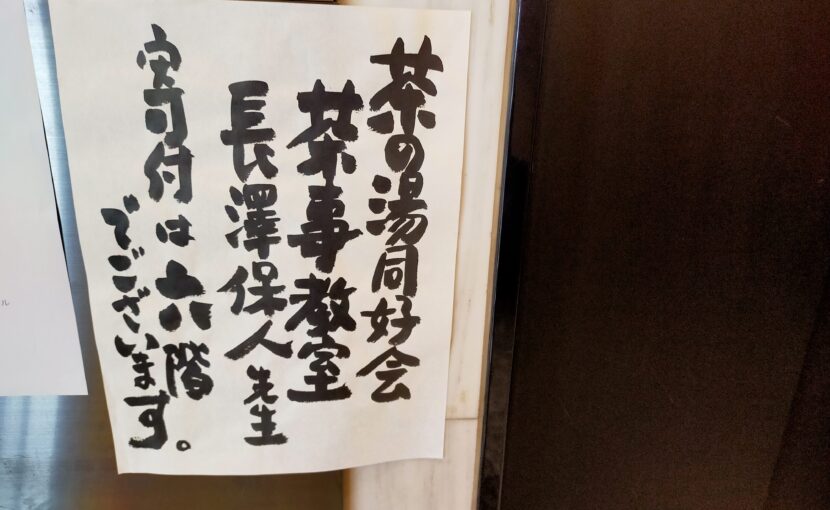 茶の湯同好会
茶事教室
長澤保人先生
寄付は六階
でございます。
ル